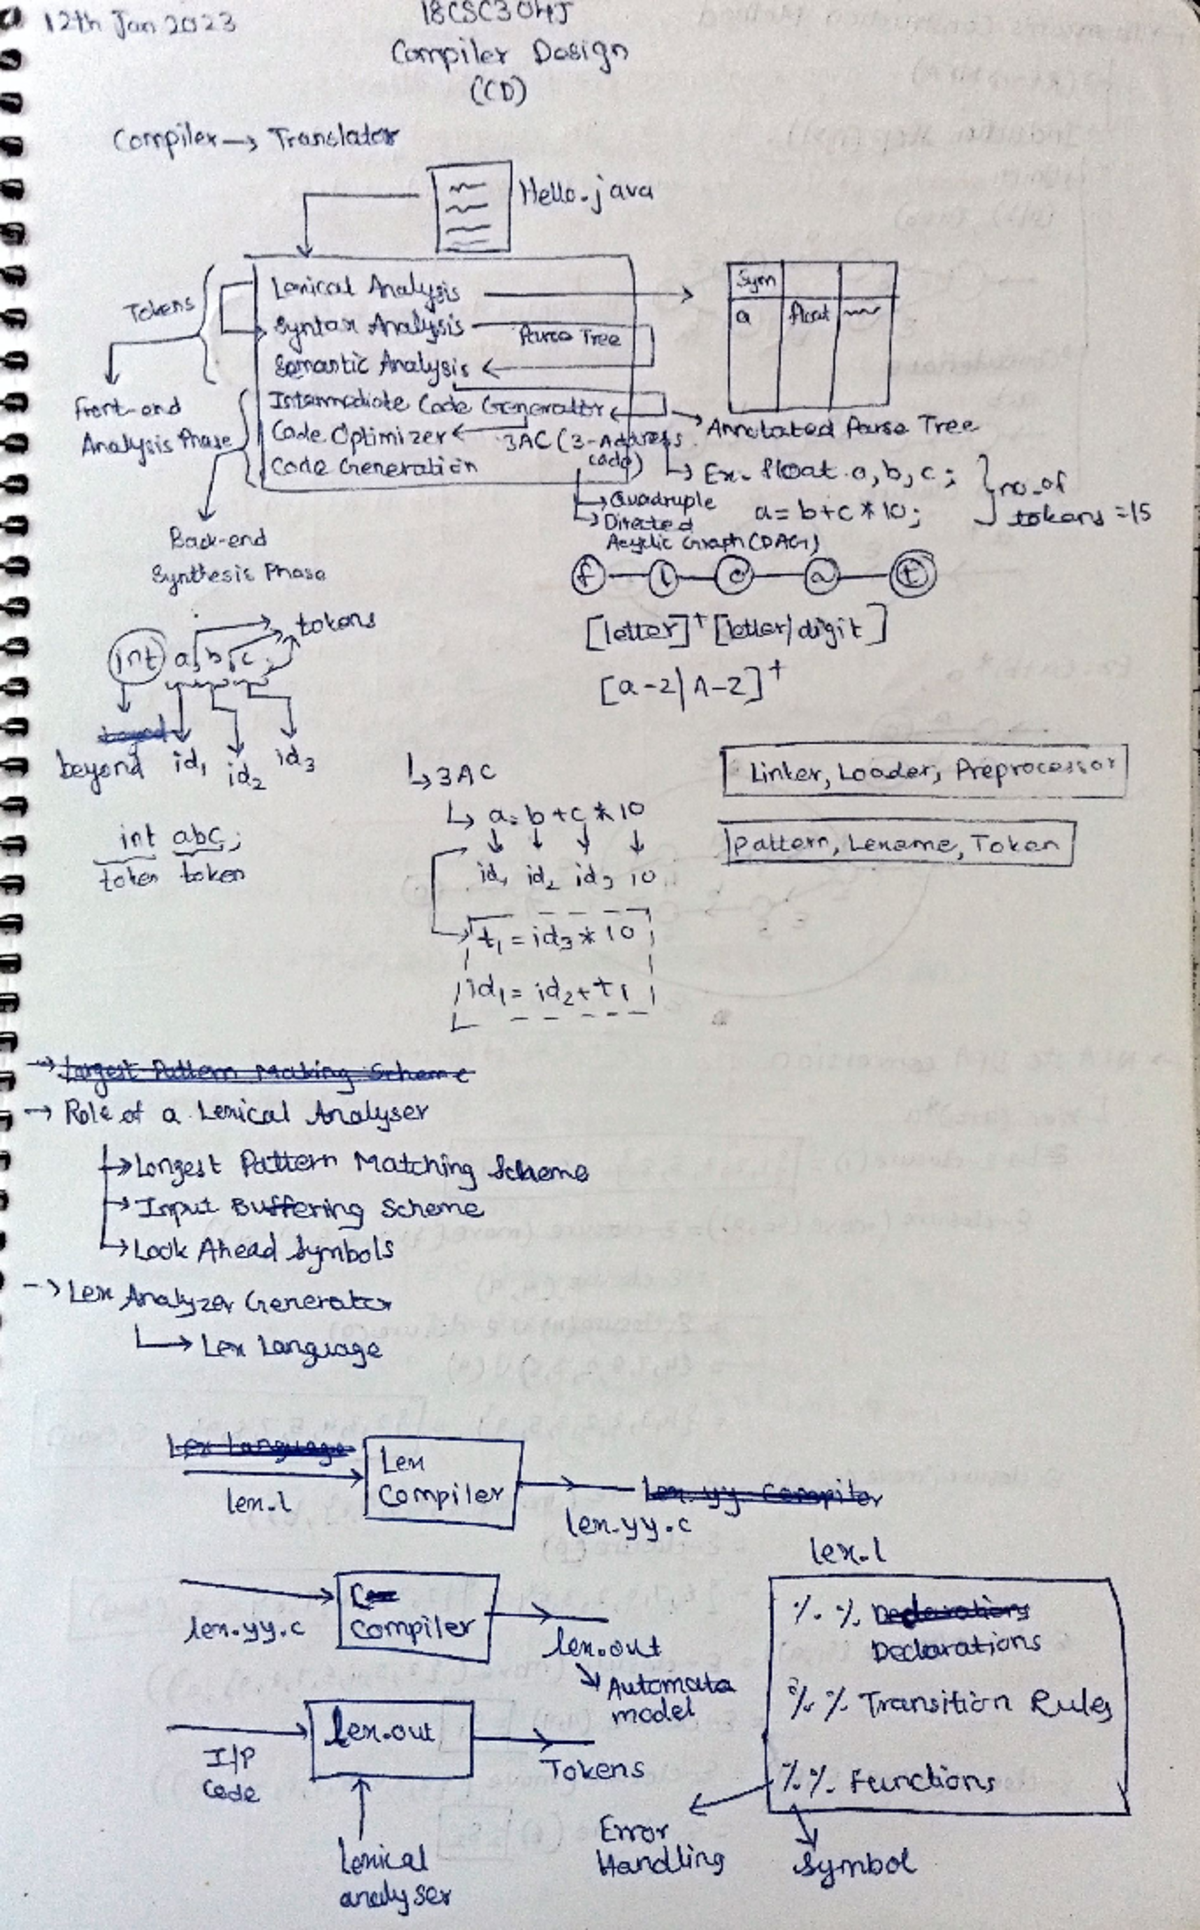 12th Jan 2023
18CSC304J
Compiler Design
(CD)
Compiler → Translator
Hello.java
Lexical Analysis
Syntax Analysis
Parse Tree
Semantic Analysis
Intermediate Code Generator
Code Optimizer
3AC (3-Address code)
Code Generation
Tokens
Front-end
Analysis Phase
Back-end
Synthesis Phase
Sym
a float
Annotated Parse Tree
Ex- float a, b, c;
a = b+c * 10;
no. of
tokens = 15
→ Quadruple
→ Directed
Acyclic Graph (DAG)
f l o a t
[letter]+ [letter/digit]
[a-z|A-Z]+
int a, b, c;
tokens
beyond id1 id2 id3
int abc;
token token
↳ 3AC
↳ a = b + c * 10
id1 id2 id3 10
t1 = id3 * 10
id1 = id2 + t1
Linker, Loader, Preprocessor
Pattern, Lexeme, Token
→ Largest Pattern Making Scheme
→ Role of a Lexical Analyser
→ Longest Pattern Matching Scheme
→ Input Buffering Scheme
→ Look Ahead Symbols
→ Lex Analyzer Generator
→ Lex Language
Lex Language
lex.l
Lex
Compiler
Lex.yy Compiler
lex.yy.c
lex.yy.c
C
Compiler
lex.out
Automata
model
I/P
Code
lex.out
Tokens
lexical
analyser
lex.l
%% Declarations
Declarations
%% Transition Rules
%% Functions
Error
Handling
Symbol